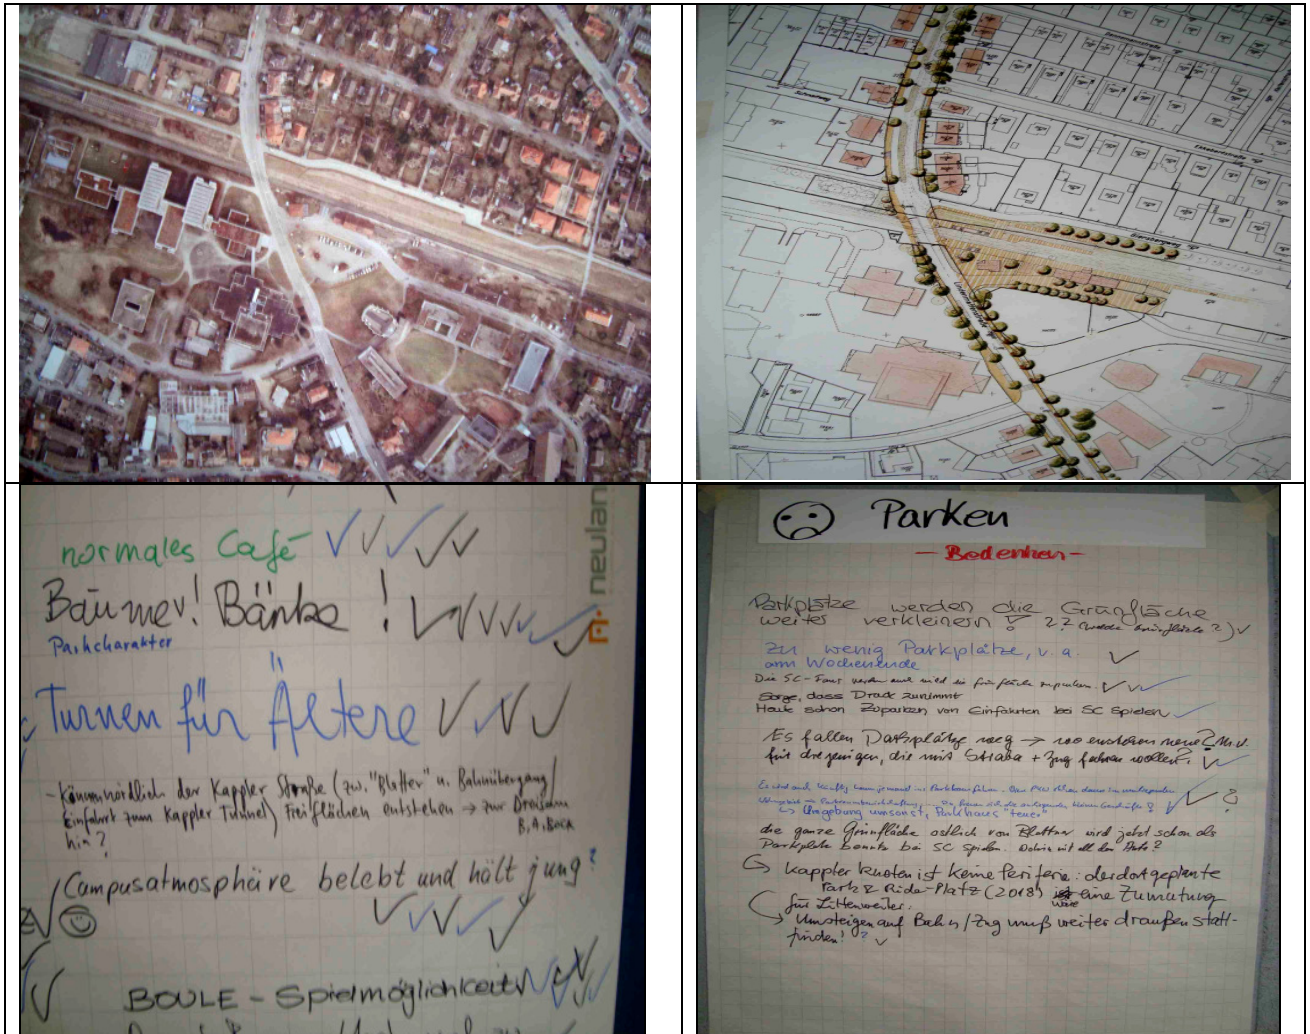 normales Café
Bäume! Bänke!
Parkcharakter
Turnen für Ältere
- Können nördlich der Kappler Straße (zw. "Blatter" u. Bahnübergang/
Einfahrt zum Kappler Tunnel) Freiflächen entstehen → zur Dreisam
hin?
Campusatmosphäre belebt und hält jung?
BOULE - Spielmöglichkeit
neulan
Parken
- Bedenken -
Parkplätze werden die Grünfläche
weiter verkleinern ? ? ? (welche Grünfläche?)
Zu wenig Parkplätze, v. a.
am Wochenende
Die SC-Fans werden auch wild die Grünfläche zuparken.
Sorge, dass Druck zunimmt
Heute schon Zuparken von Einfahrten bei SC Spielen
Es fallen Parkplätze weg → wo entstehen neue?
für diejenigen, die mit Straba + Zug fahren wollen?
↳ Umgebung umsonst, Parkhaus "teuer"
die ganze Grünfläche östlich von Blattner wird jetzt schon als
Parkplatz benutzt bei SC Spielen. Wohin mit all den Autos?
Kappler Knoten ist keine Periferie: der dort geplante
Park & Ride-Platz (2018) wäre eine Zumutung
für Littenweiler.
Umsteigen auf Bahn/Zug muß weiter draußen statt-
finden! ?